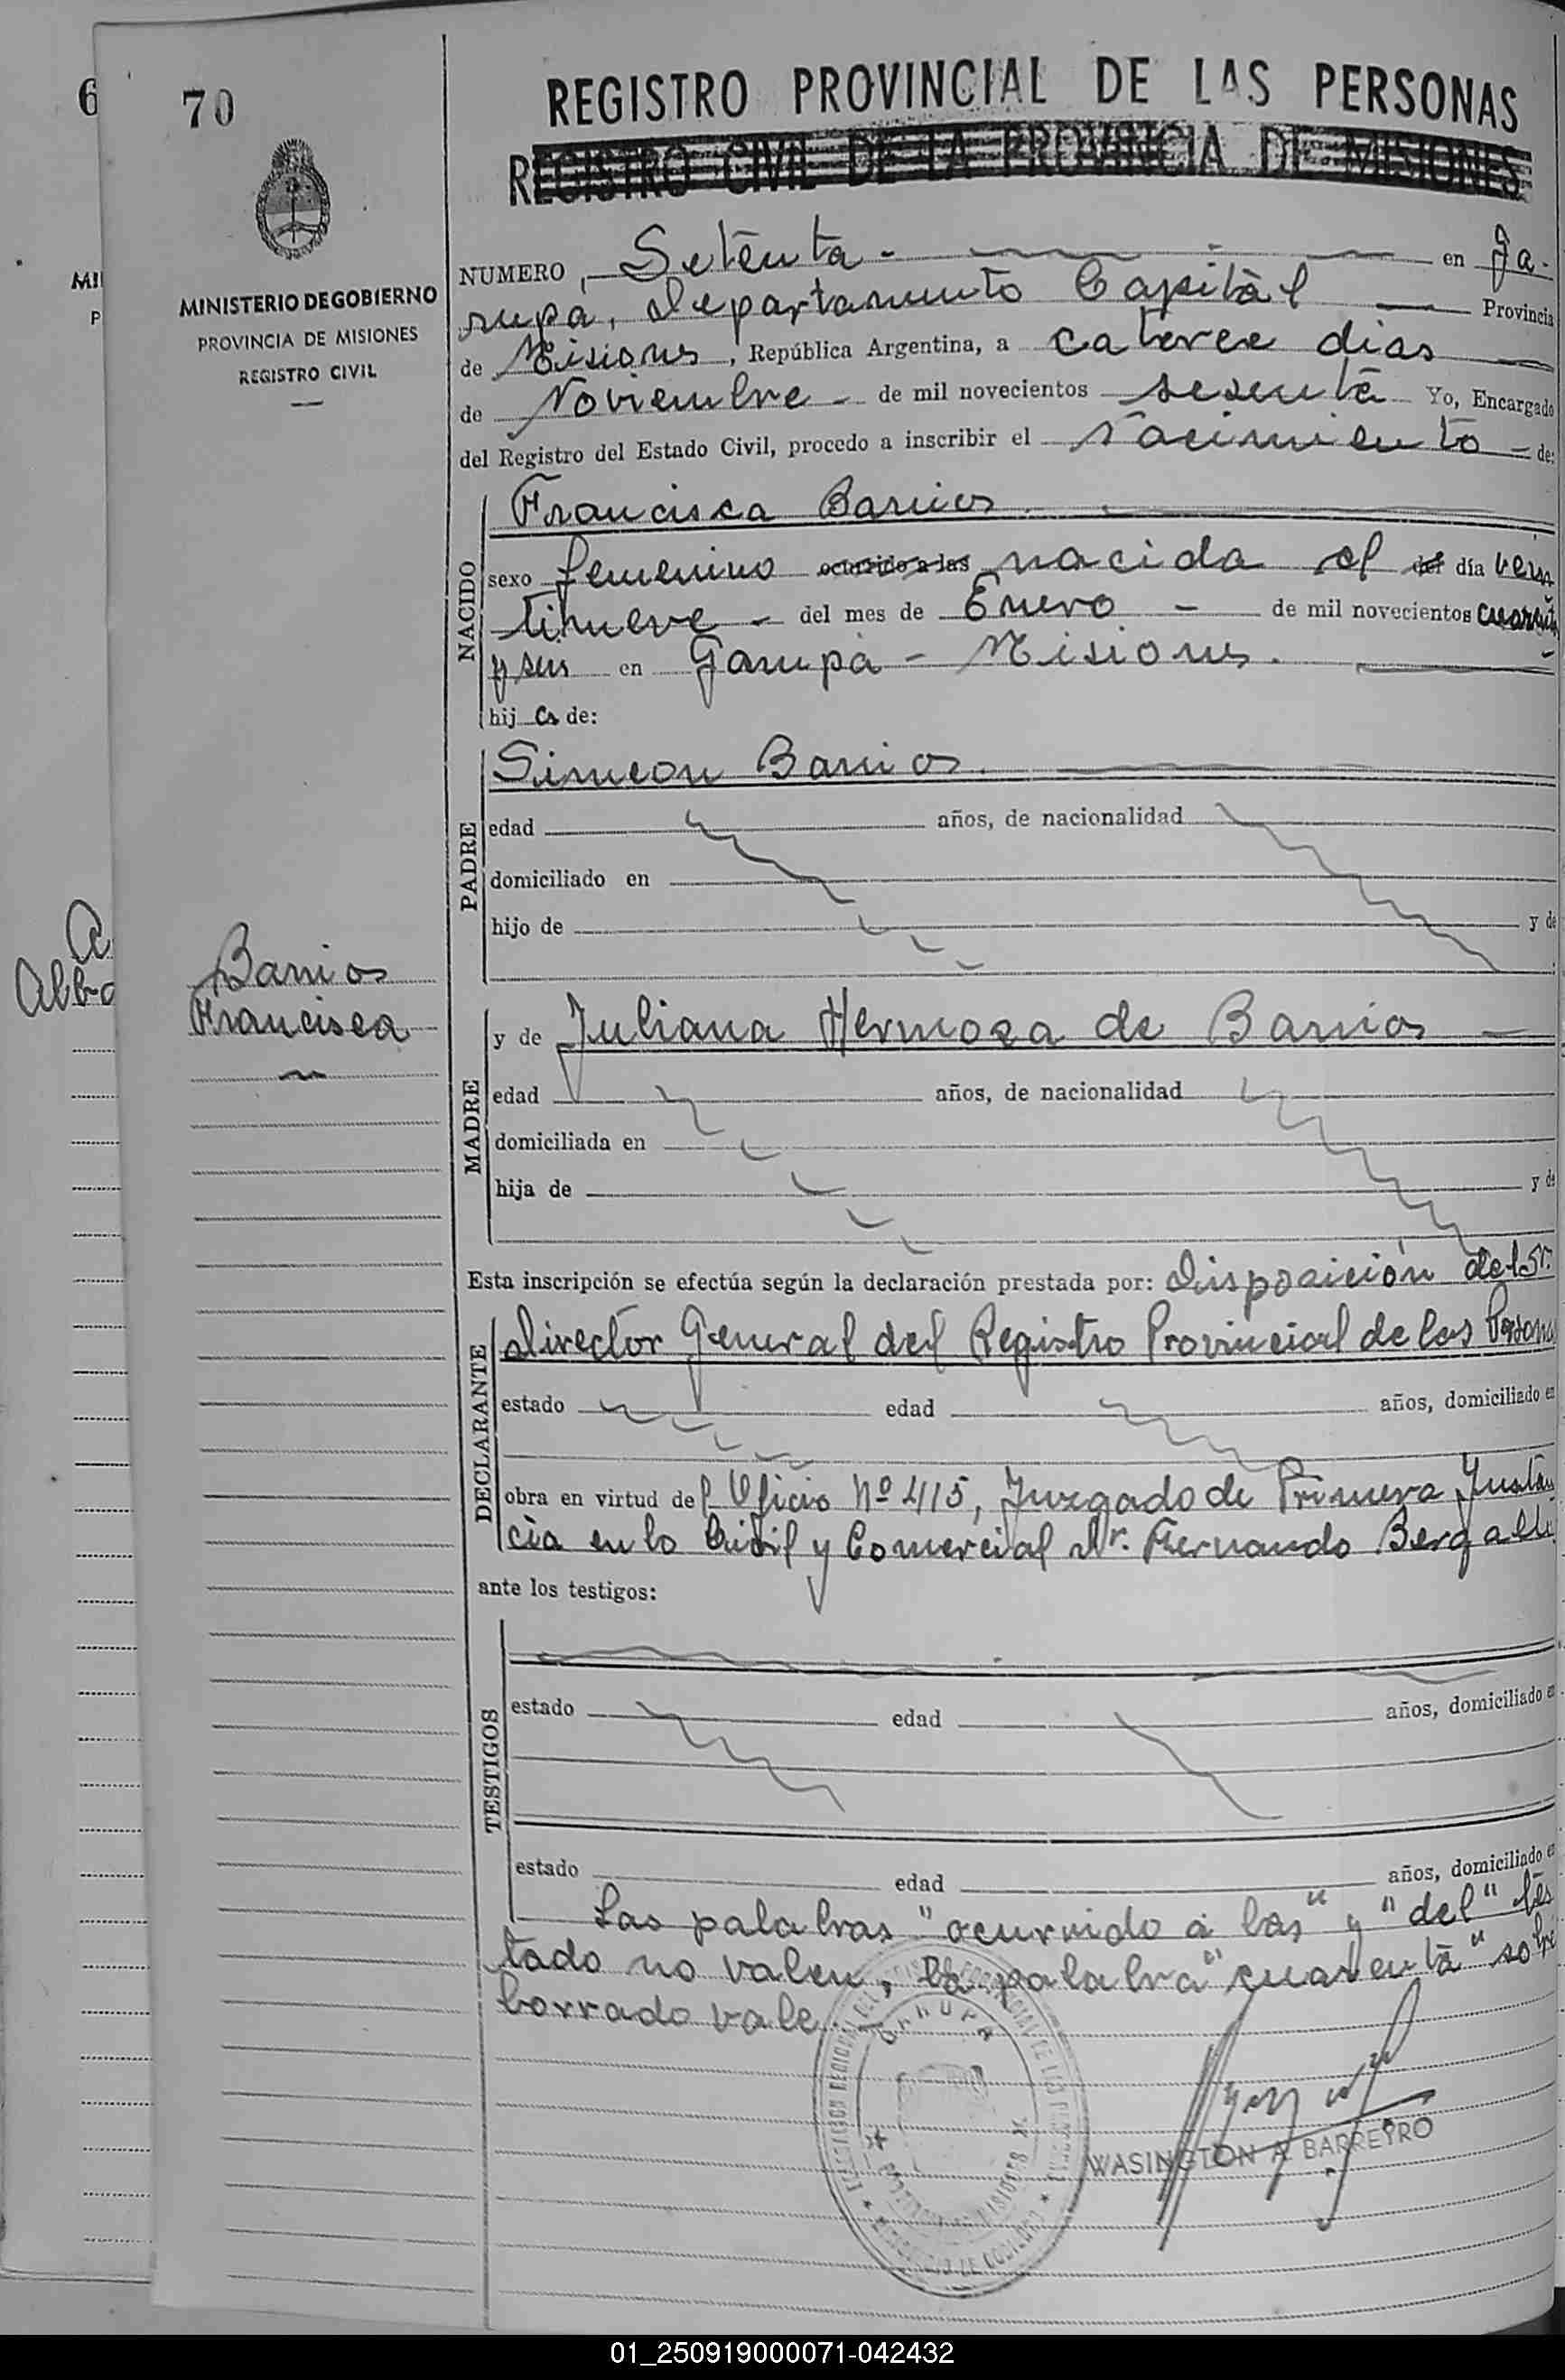 6
70
REGISTRO PROVINCIAL DE LAS PERSONAS
REGISTRO CIVIL DE LA PROVINCIA DE MISIONES
MINISTERIO DE GOBIERNO
PROVINCIA DE MISIONES
REGISTRO CIVIL
NUMERO, Setenta - en Ga-
rupá, Departamento Capital Provincia
de Misiones, República Argentina, a catorce dias
de Noviembre - de mil novecientos sesenta Yo, Encargado
del Registro del Estado Civil, procedo a inscribir el nacimiento - de:
NACIDO
Francisca Barrios
sexo femenino ocurrido a las nacida el del día vein
tinueve - del mes de Enero - de mil novecientos cuarenta
y seis en Garupá - Misiones.
hij a de:
PADRE
Simeon Barrios.
edad años, de nacionalidad
domiciliado en
hijo de y de
Barrios
Francisca
MADRE
y de Juliana Hermosa de Barrios
edad años, de nacionalidad
domiciliada en
hija de y de
Esta inscripción se efectúa según la declaración prestada por: Disposición del Sr.
DECLARANTE
Director General del Registro Provincial de las Personas
estado edad años, domiciliado en
obra en virtud del Oficio Nº 415, Juzgado de Primera Instan
cia en lo Civil y Comercial Dr. Fernando
ante los testigos:
TESTIGOS
estado edad años, domiciliado en
estado edad años, domiciliado en
Las palabras "ocurrido a las" y "del" tes
tado no valen, la palabra "cuarenta" sobre
borrado vale.
GARUPA
WASINGTON A. BARREYRO
01_250919000071-042432